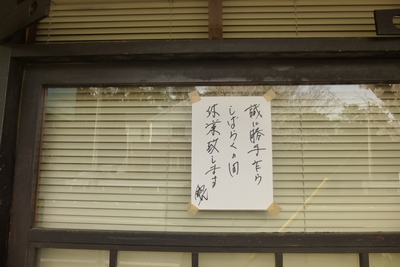 誠に勝手乍ら
しばらくの間
休業致します